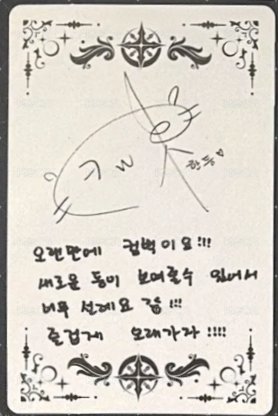 한동♡
오랜만에 컴백이요!!!
새로운 동이 보여줄수 있어서
너무 설레요 금 !!!
즐겁게 오래가자 !!!!